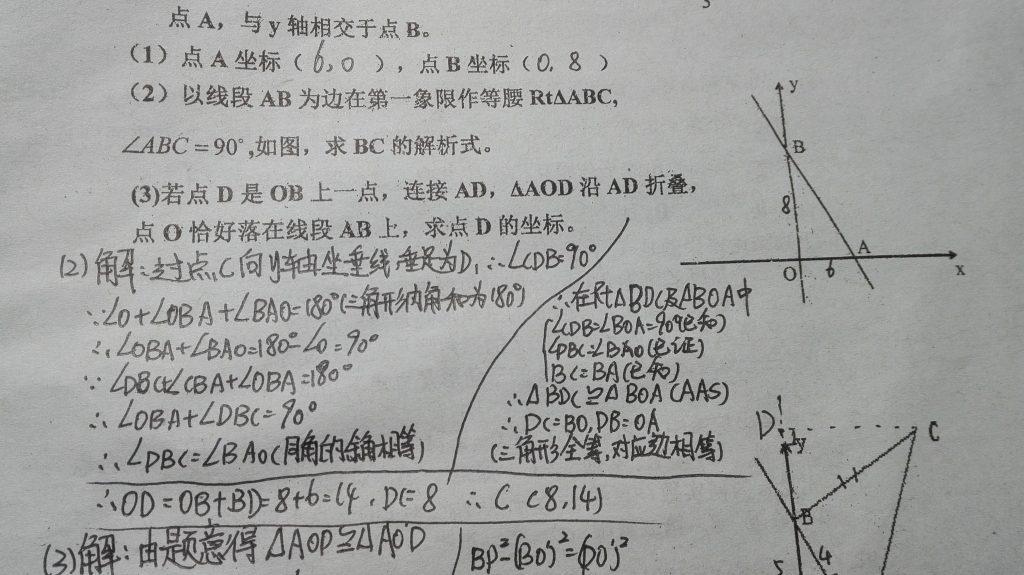 点A，与y轴相交于点B。
(1) 点A坐标（6,0），点B坐标（0,8）
(2) 以线段AB为边在第一象限作等腰RtΔABC,
∠ABC=90°,如图，求BC的解析式。
(3)若点D是OB上一点，连接AD，ΔAOD沿AD折叠，
点O恰好落在线段AB上，求点D的坐标。
y
B
8
A
O
6
x
(2)解:过点C向y轴坐垂线,垂足为D,∴∠CDB=90°
∵∠O+∠OBA+∠BAO=180°(三角形内角和为180°)
∴∠OBA+∠BAO=180-∠O=90°
∵∠DBC+∠CBA+∠OBA=180°
∴∠OBA+∠DBC=90°
∴∠DBC=∠BAO(同角的余角相等)
∴在RtΔBDC及ΔBOA中
∠CDB=∠BOA=90°(已知)
∠DBC=∠BAO(已证)
BC=BA(已知)
∴ΔBDC≌ΔBOA(AAS)
∴DC=BO,DB=OA
(三角形全等,对应边相等)
∴OD=OB+BD=8+6=14,DC=8 ∴C(8,14)
D
y
C
B
4
5
(3)解:由题意得ΔAOD≌ΔAO'D
BD²-(BO')²=(DO')²